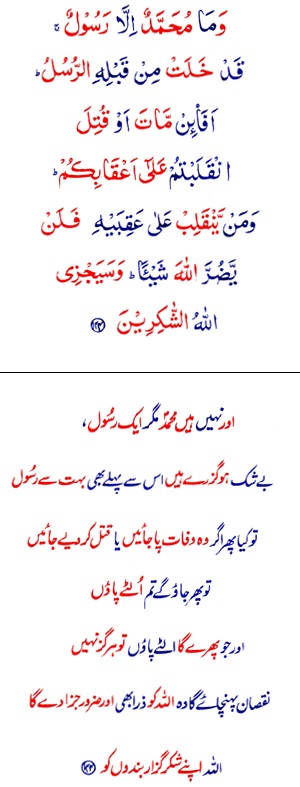 وَمَا مُحَمَّدٌ اِلَّا رَسُوْلٌ ۚ
قَدْ خَلَتْ مِنْ قَبْلِهِ الرُّسُلُ ؕ
اَفَا۟ئِنْ مَّاتَ اَوْ قُتِلَ
انْقَلَبْتُمْ عَلٰٓى اَعْقَابِكُمْ ؕ
وَمَنْ يَّنْقَلِبْ عَلٰى عَقِبَيْهِ فَلَنْ
يَّضُرَّ اللّٰهَ شَيْـًٔا ؕ وَسَيَجْزِى
اللّٰهُ الشّٰكِرِيْنَ ﴿۱۴۴﴾
اور نہیں ہیں محمدؐ مگر ایک رسُول،
بے شک ہو گزرے ہیں اس سے پہلے بھی بہت سے رسُول
تو کیا پھر اگر وہ وفات پا جائیں یا قتل کر دیے جائیں
تو پھر جاؤ گے تم اُلٹے پاؤں
اور جو پھرے گا الٹے پاؤں تو ہرگز نہیں
نقصان پہنچائے گا وہ اللہ کو ذرا بھی اور ضرور جزا دے گا
اللہ اپنے شکر گزار بندوں کو ﴿۱۴۴﴾